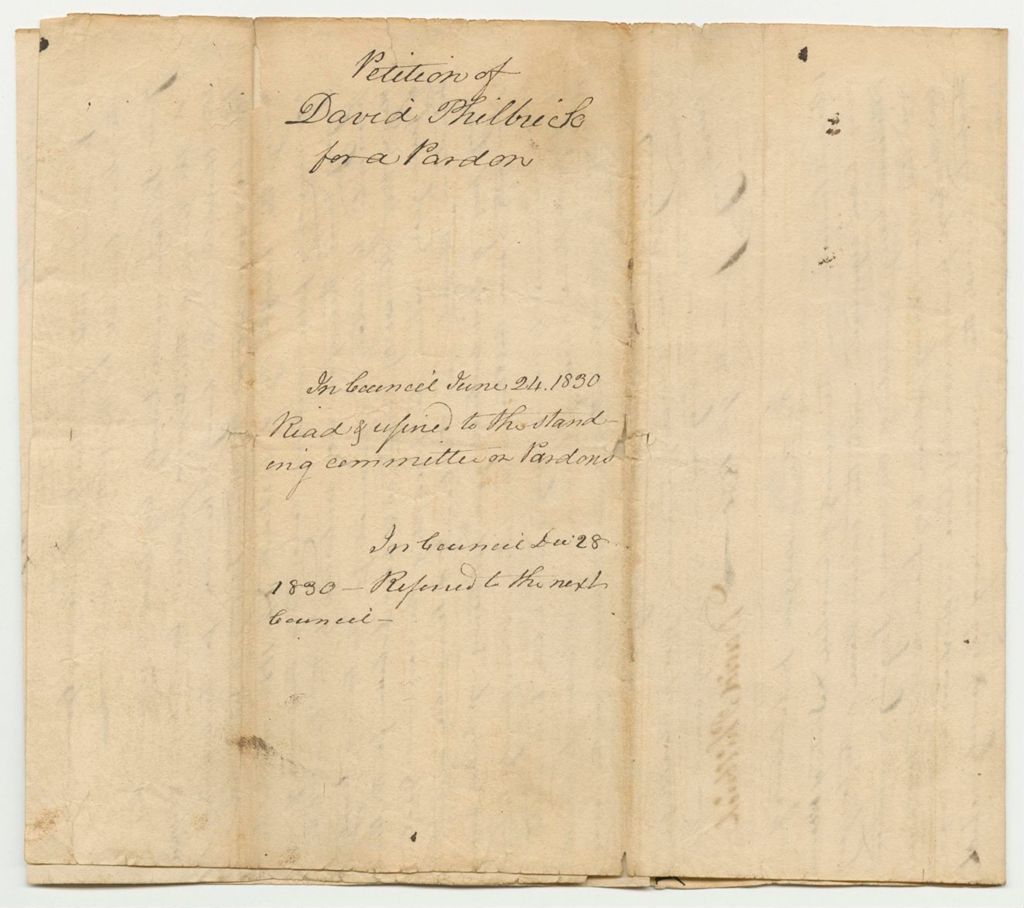 Petition of
David Philbrick
for a Pardon
In Council June 24. 1830
Read & refered to the stand-
ing committee on Pardons
In Council Dec 28
1830 — Refered to the next
Council —